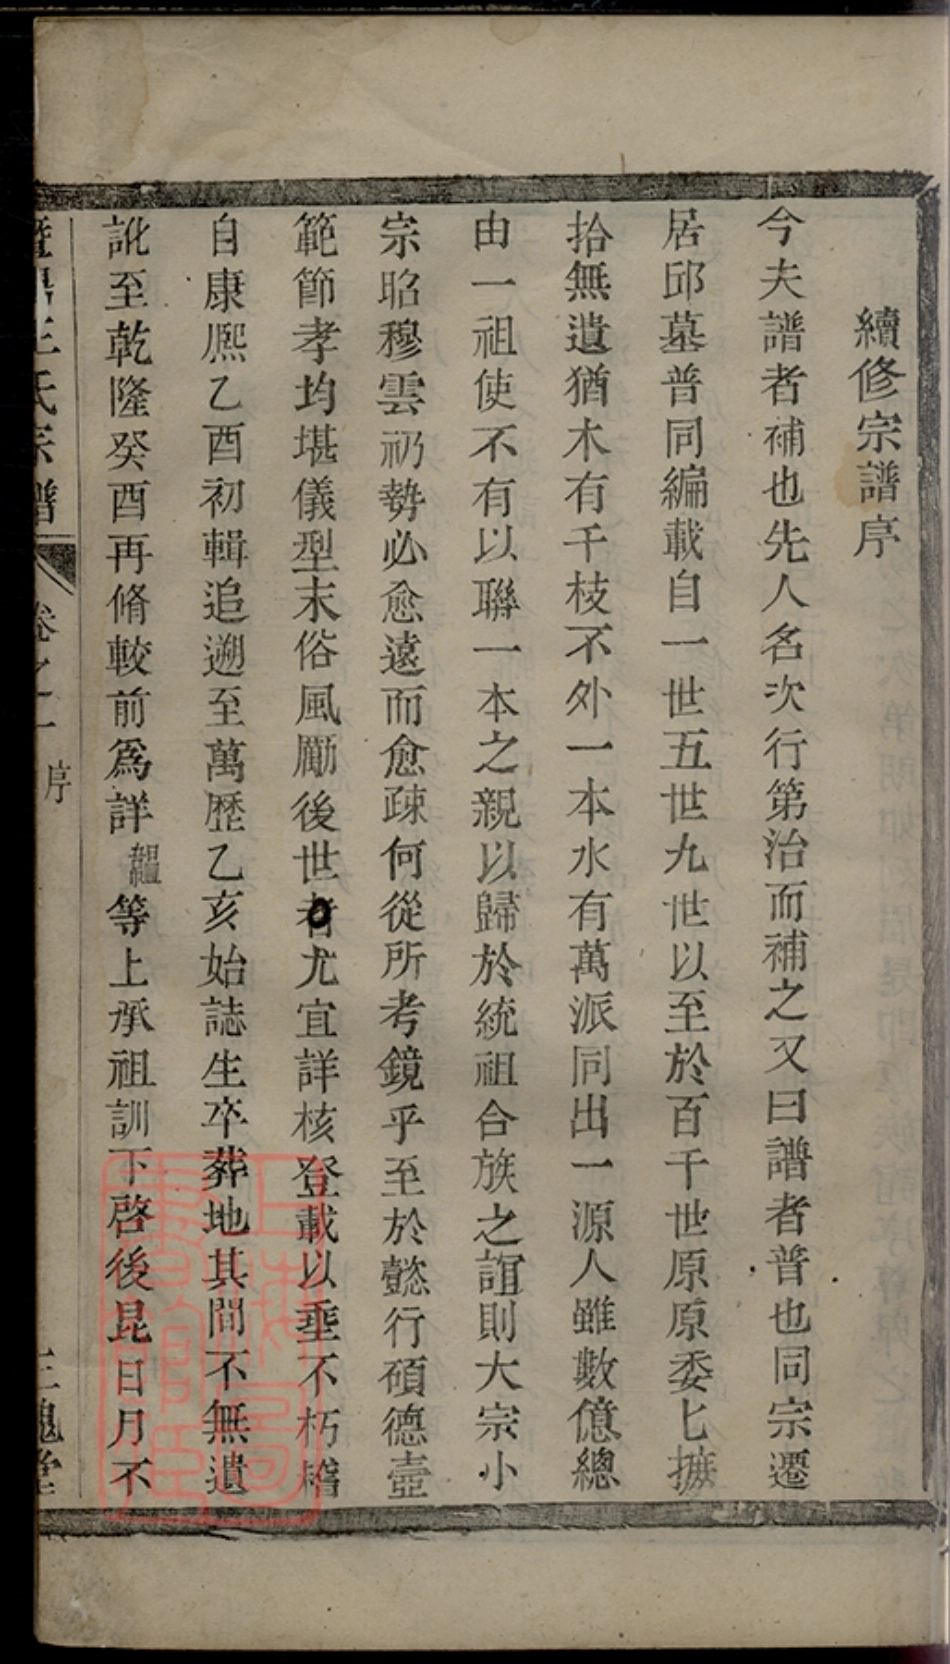 續修宗譜序
今夫譜者補也先人名次行第治而補之又曰譜者普也同宗遷
居邱墓普同編載自一世五世九世以至於百千世原原委匕摭
拾無遺猶木有千枝不外一本水有萬派同出一源人雖數億總
由一祖使不有以聯一本之親以歸於統祖合族之誼則大宗小
宗昭穆雲礽勢必愈遠而愈疎何從所考鏡乎至於懿行碩德壼
範節孝均堪儀型末俗風勵後世者尤宜詳核登載以垂不朽稽
自康熈乙酉初輯追遡至萬歷乙亥始誌生卒葬地其間不無遺
訛至乾隆癸酉再脩較前爲詳 等上承祖訓下啓後昆日月不
王氏宗譜 卷之一 序 三槐堂